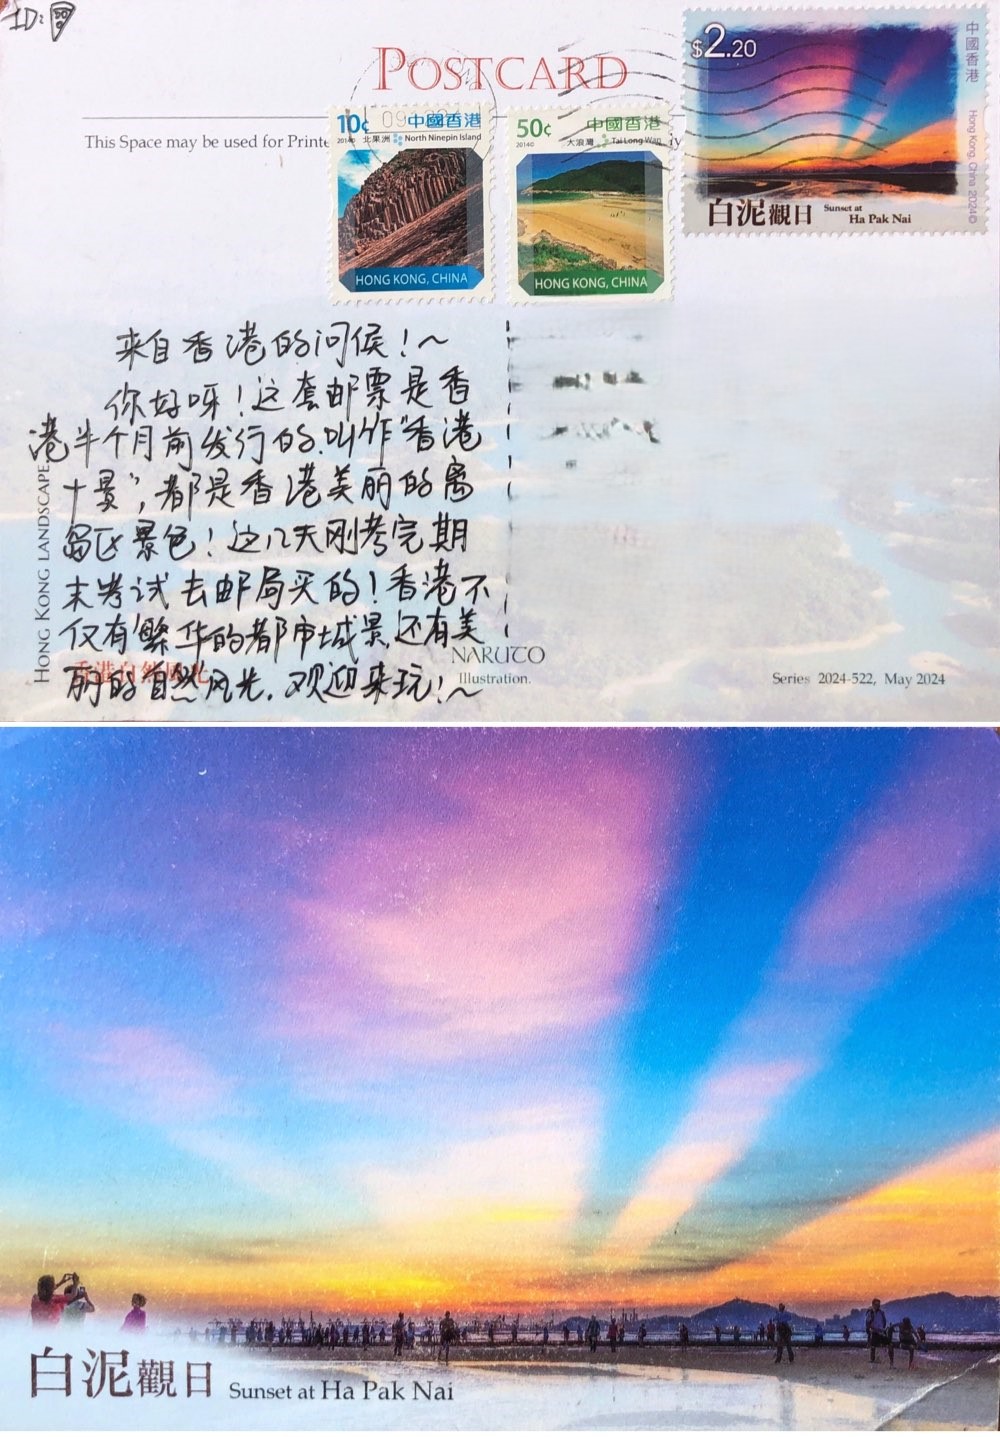 ID:
POSTCARD
This Space may be used for Printe
$2.20
中國香港
Hong Kong, China 2024
白泥觀日 Sunset at Ha Pak Nai
10¢ 中國香港
2014 北果洲 North Ninepin Island
HONG KONG, CHINA
50¢ 中國香港
2014 大浪灣 Tai Long Wan
HONG KONG, CHINA
09
来自香港的问候！～
你好呀！这套邮票是香
港半个月前发行的.叫作“香港
十景”，都是香港美丽的离
岛区景色！这几天刚考完期
末考试去邮局买的！香港不
仅有繁华的都市城景,还有美
丽的自然风光.欢迎来玩！～
HONG KONG LANDSCAPE
香港自然風光
NARUTO
Illustration.
Series 2024-522, May 2024
白泥觀日 Sunset at Ha Pak Nai